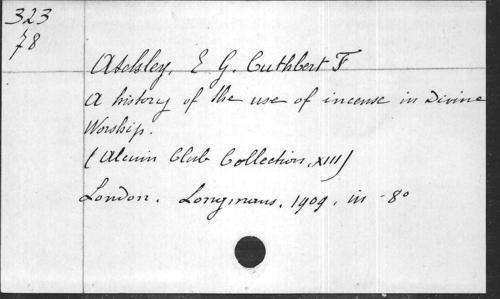 323
78
Atchley, E G. Cuthbert F
A history of the use of incense in Divine
Worship.
(Alcuin Club Collection, XIII)
London. Longmans, 1909, in - 8º